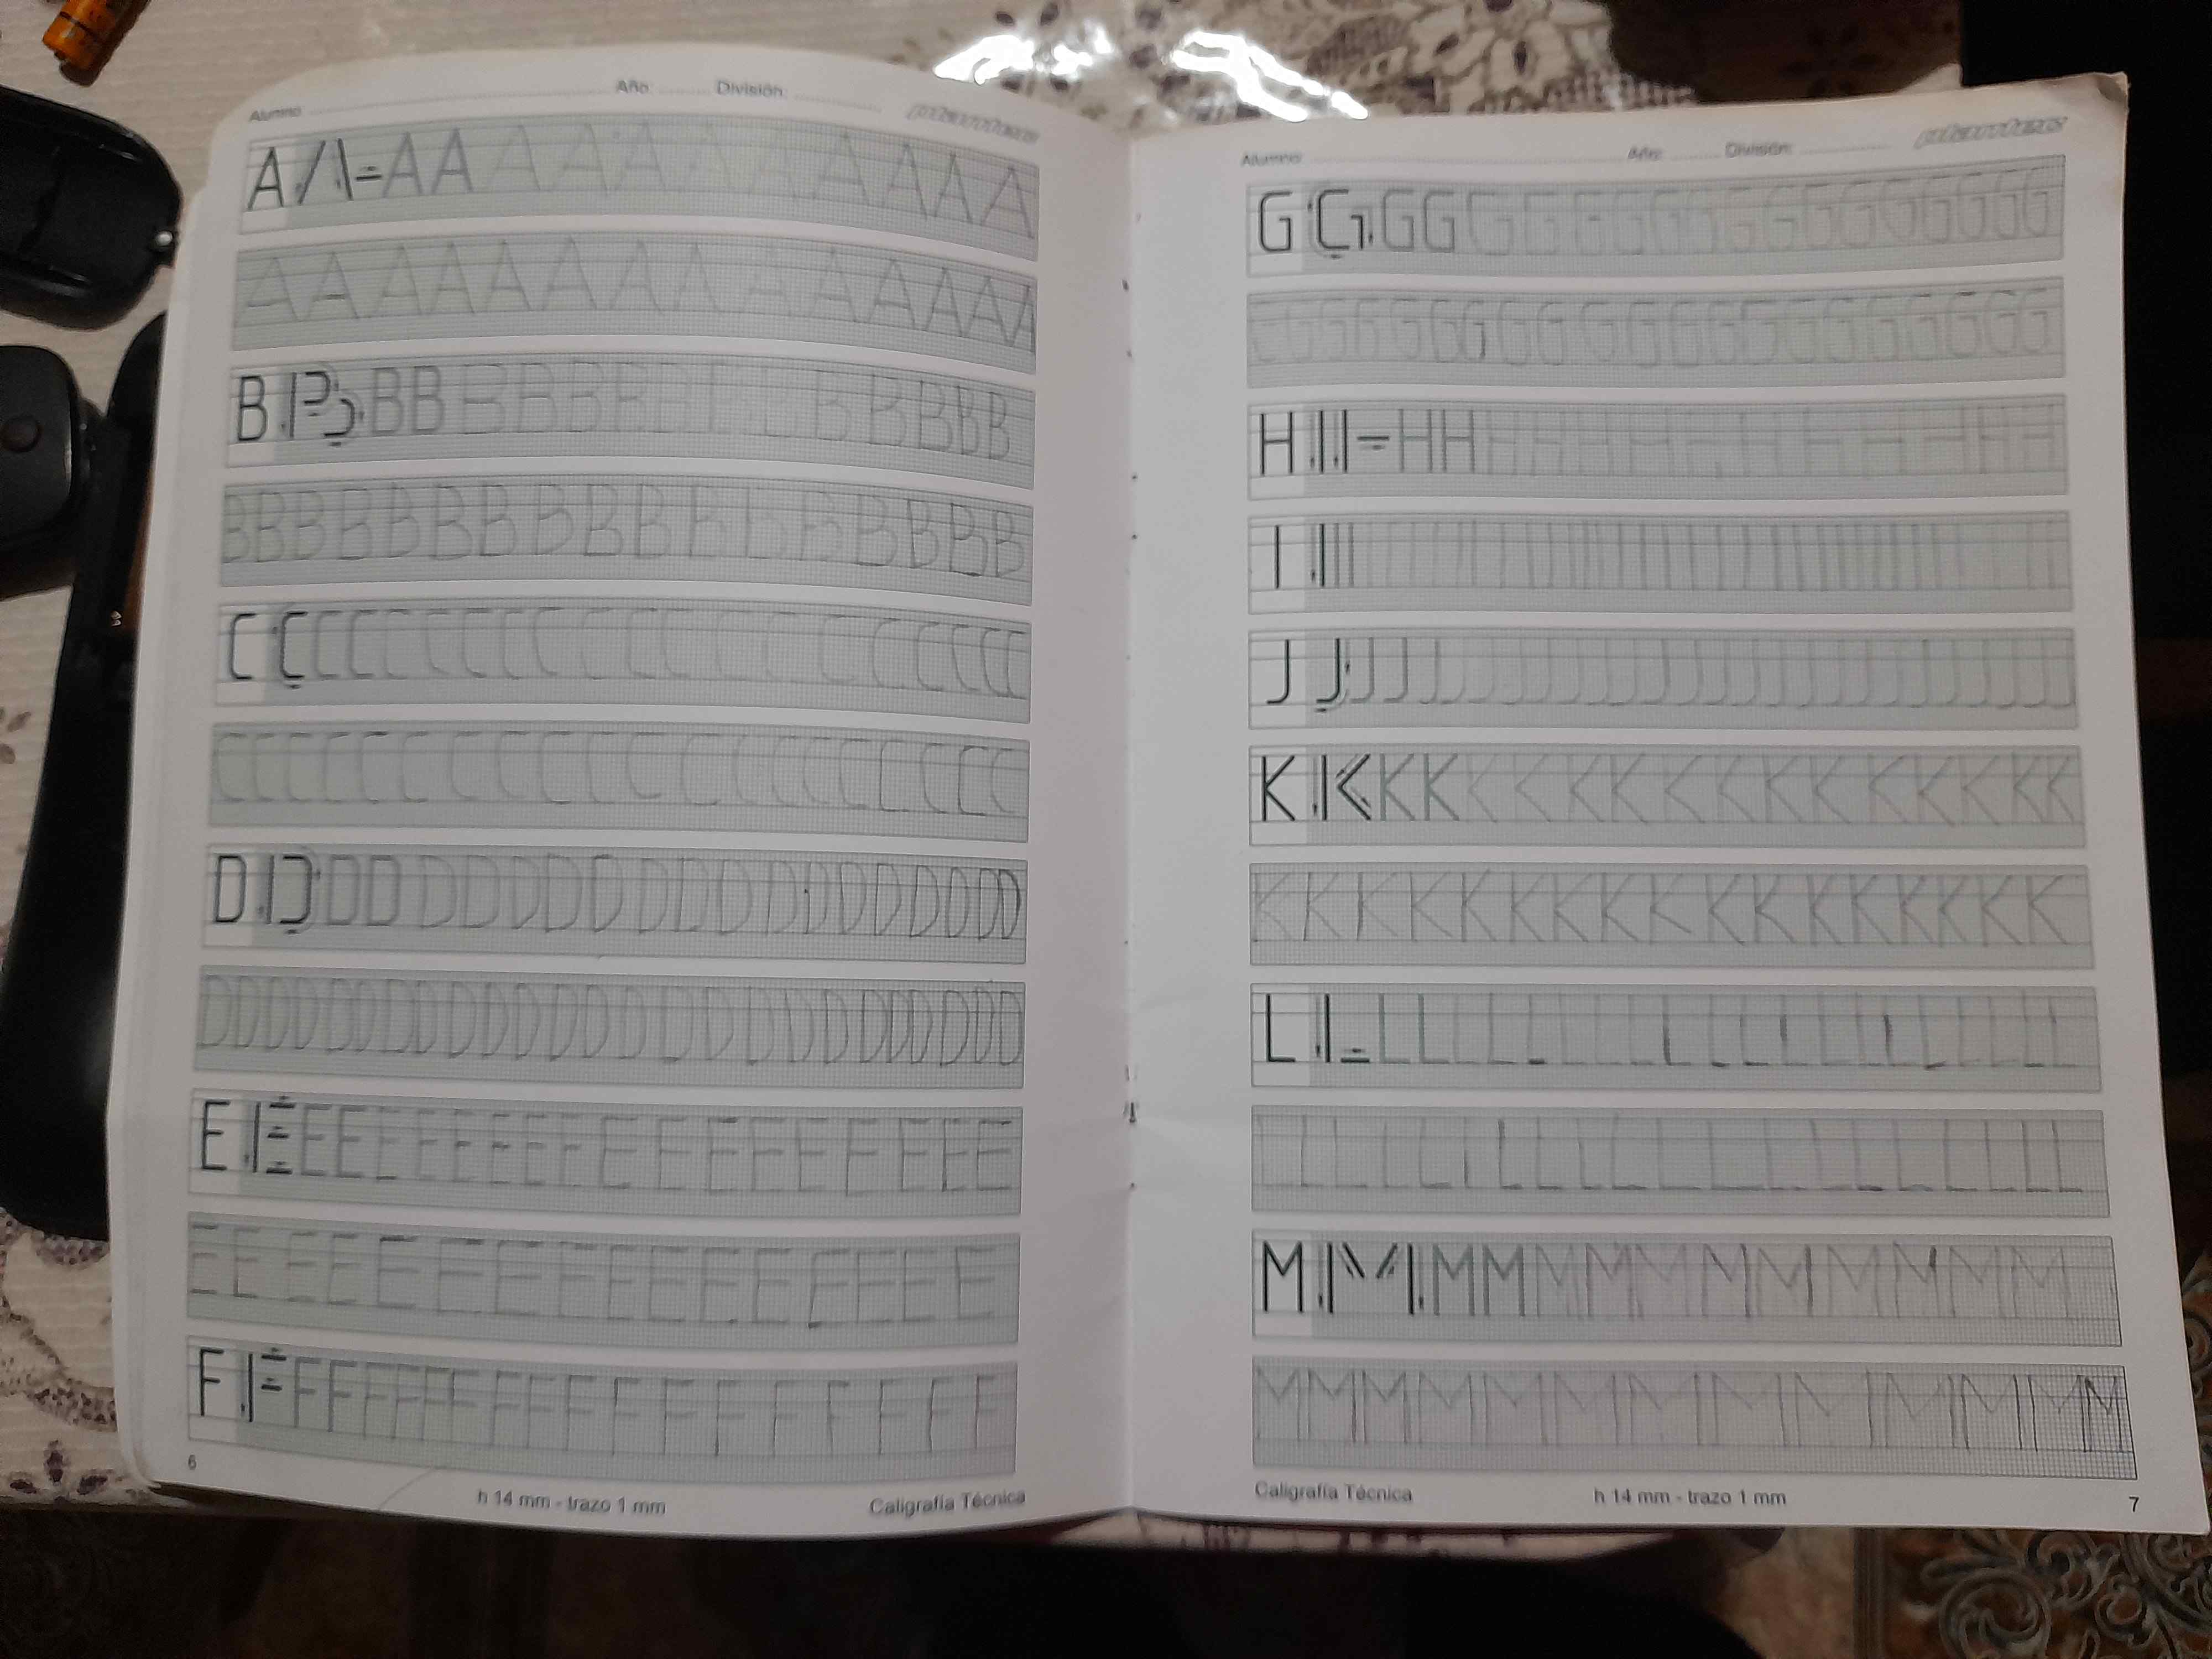 Alumno Año: División: plantec
A A A A A A A A A A A A A A
A A A A A A A A A A A A A A A
B B B B B B B B B B B B B B
B B B B B B B B B B B B B B B B B B
C C C C C C C C C C C C C C C C C C
C C C C C C C C C C C C C C C C C C
D D D D D D D D D D D D D D D D D D
D D D D D D D D D D D D D D D D D D D D
E E E E E E E E E E E E E E E E
E E E E E E E E E E E E E E E
F F F F F F F F F F F F F F F F
6
h 14 mm - trazo 1 mm
Caligrafía Técnica
Alumno: Año: División: plantec
G G G G G G G G G G G G G G G G G
G G G G G G G G G G G G G G G G G G
H H H H H H H H H H H H H H
I I I I I I I I I I I I I I I I I I I I
J J J J J J J J J J J J J J J J J J J J
K K K K K K K K K K K K K K K K
K K K K K K K K K K K K K K K K K
L L L L L L L L L L L L L L L L L L
L L L L L L L L L L L L L L L L L L L L
M M M M M M M M M M M M
M M M M M M M M M M M M M M
Caligrafía Técnica
h 14 mm - trazo 1 mm
7